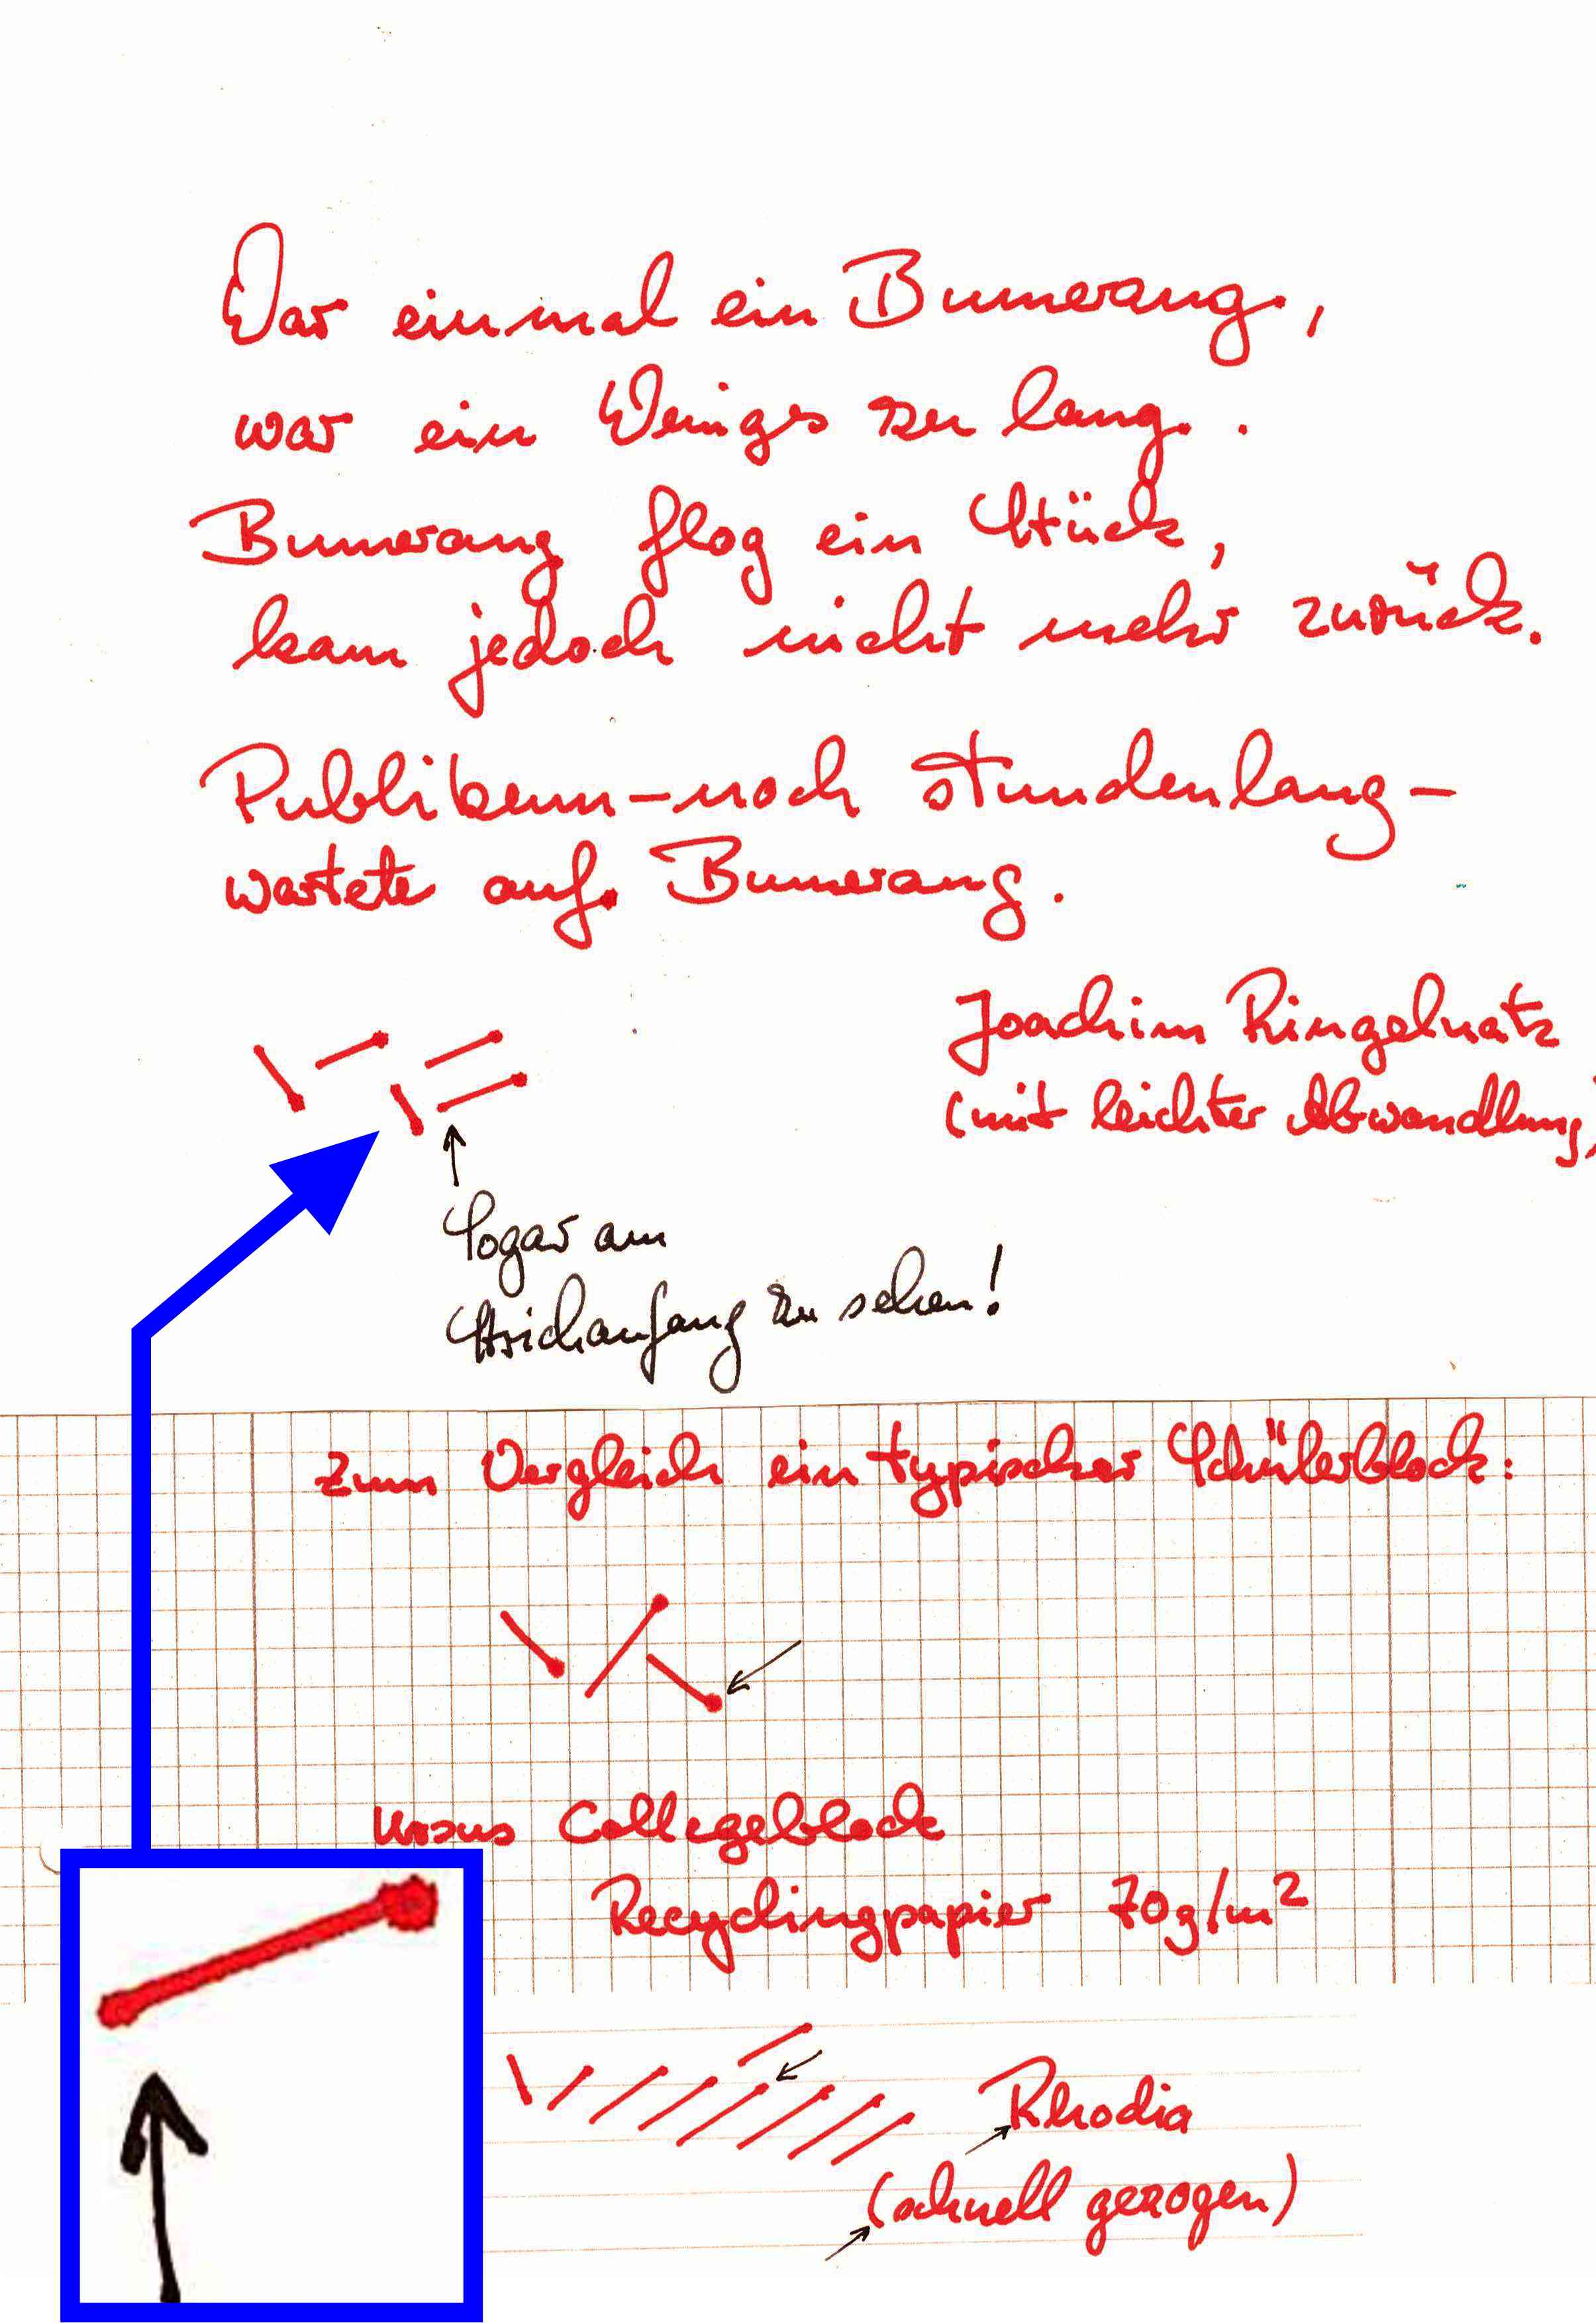 War einmal ein Bumerang,
war ein Weniges zu lang.
Bumerang flog ein Stück,
kam jedoch nicht mehr zurück.
Publikum – noch stundenlang –
wartete auf Bumerang.
Joachim Ringelnatz
(mit leichter Abwandlung)
Sogar am
Strichanfang zu sehen!
Zum Vergleich ein typischer Schülerblock:
Ursus Collegeblock
Recyclingpapier 70g/m²
Rhodia
(schnell gezogen)